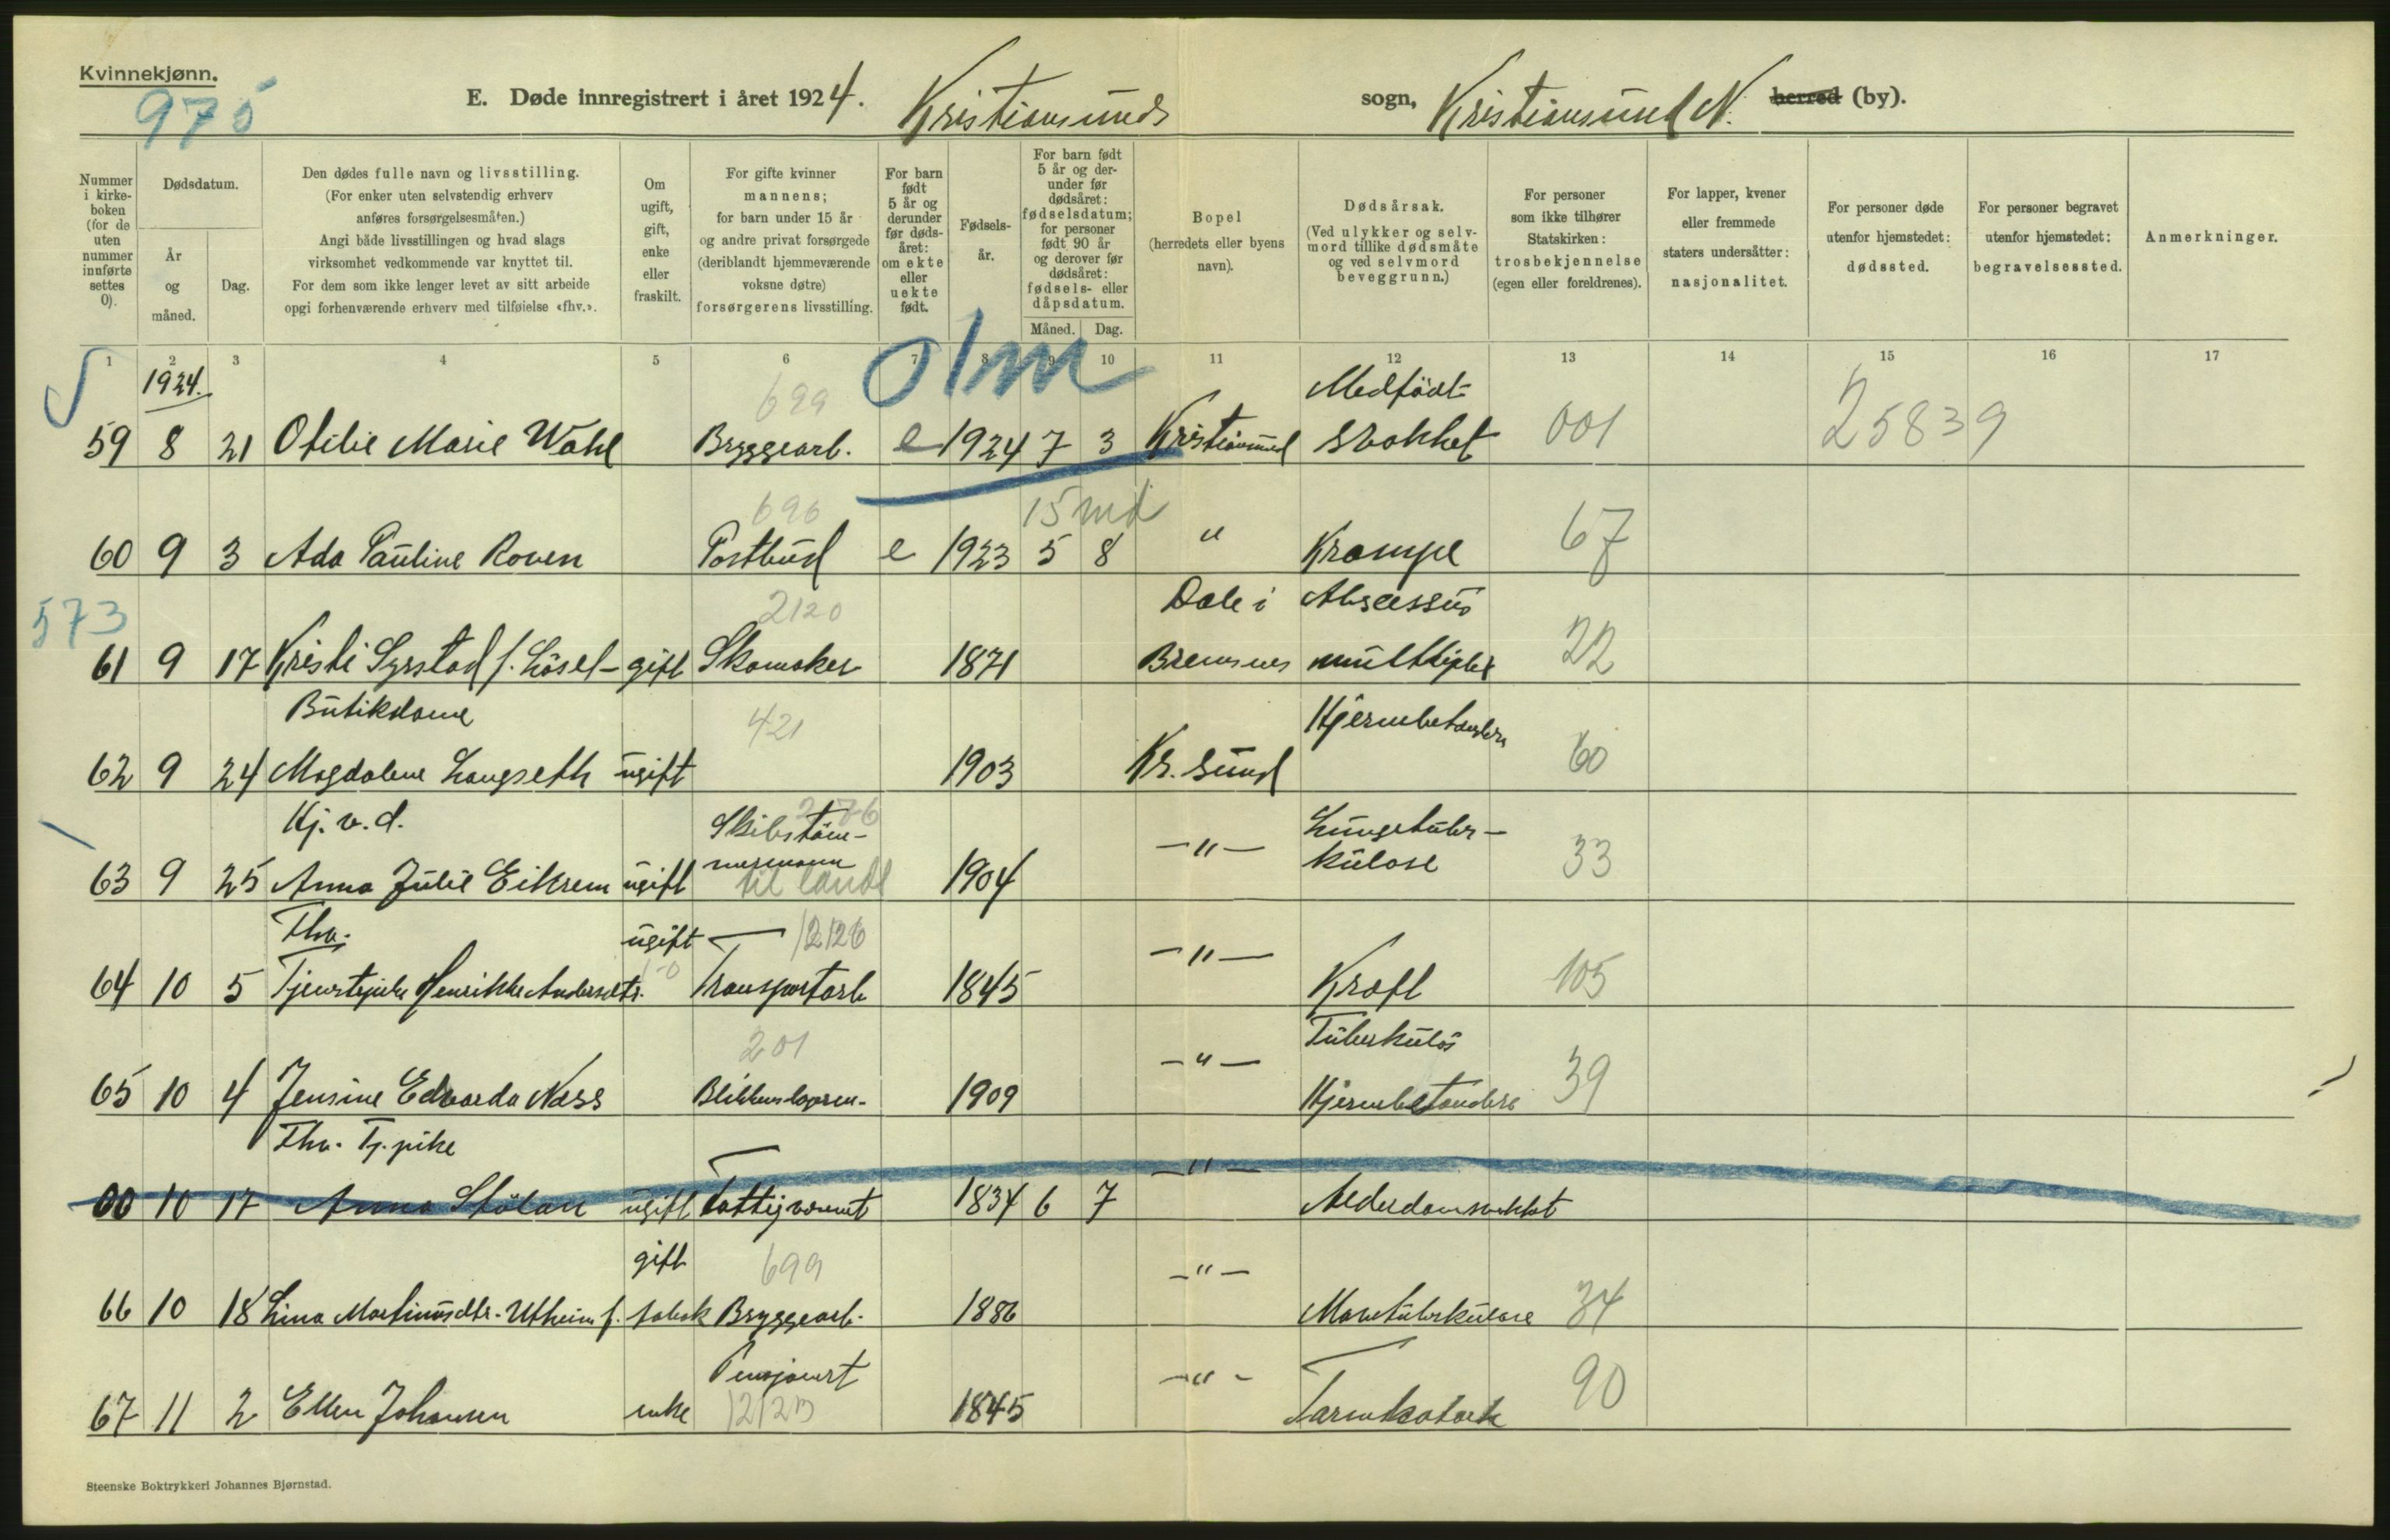 Kvinnekjønn.
975
E. Døde innregistrert i året 1924. Kristiansunds sogn, Kristiansund N. herred (by).
Nummer i kirke-boken (for de uten nummer innførte settes 0).
Dødsdatum.
År og måned.
Dag.
Den dødes fulle navn og livsstilling.
(For enker uten selvstendig erhverv anføres forsørgelsesmåten.)
Angi både livsstillingen og hvad slags virksomhet vedkommende var knyttet til.
For dem som ikke lenger levet av sitt arbeide opgi forhenværende erhverv med tilføielse «fhv.».
Om ugift, gift, enke eller fraskilt.
For gifte kvinner mannens; for barn under 15 år og andre privat forsørgede (deriblandt hjemmeværende voksne døtre) forsørgerens livsstilling.
For barn født 5 år og derunder før døds-året: om ekte eller uekte født.
Fødsels-år.
For barn født 5 år og der-under før dødsåret: fødselsdatum; for personer født 90 år og derover før dødsåret: fødsels- eller dåpsdatum.
Måned. Dag.
Bopel (herredets eller byens navn).
Dødsårsak.
(Ved ulykker og selv-mord tillike dødsmåte og ved selvmord beveggrunn.)
For personer som ikke tilhører Statskirken: trosbekjennelse (egen eller foreldrenes).
For lapper, kvener eller fremmede staters undersåtter: nasjonalitet.
For personer døde utenfor hjemstedet: dødssted.
For personer begravet utenfor hjemstedet: begravelsessted.
Anmerkninger.
1 2 3 4 5 6 7 8 9 10 11 12 13 14 15 16 17
1924. 699 01m Medfödt
59 8 21 Otilie Marie Wahl Bryggearb. e 1924 7 3 Kristiansund svakhet 001 25839
696 15 md
60 9 3 Ada Pauline Roven Postbud e 1923 5 8 " Krampe 67
573 2120 Dale i Abscessus
61 9 17 Kristi Syrstad f. Löset - gift Skomaker 1871 Bremsnes multtiplex 22
Butikdame 421 Hjernebetændelse
62 9 24 Magdalene Langseth ugift 1903 Kr. sund 60
Hj. v. d. Skibstöm- Lungetuber-
63 9 25 Anna Julie Eikrem ugift mermann til lands 1904 -"- kulose 33
Fhv. ugift 12126
64 10 5 Tjenestepike Henrikke Andersdtr. Transportarb 1845 -"- Kræft 105
201 Tuberkulös
65 10 4 Jensine Edvarda Næss 1909 -"- Hjernebetændelse 39
Fhv. Tj. pike
00 10 17 Anna Stölan ugift Fattigvæsenet 1834 6 7 -"- Alderdomsvakhet
gift 699
66 10 18 Lina Martinusdtr. Utheim f. Bryggearb. 1886 -"- Mavetuberkulose 34
Pensjonert
67 11 2 Ellen Johansen enke 12123 1845 -"- Tarmkatarh 90
Steenske Boktrykkeri Johannes Bjørnstad.